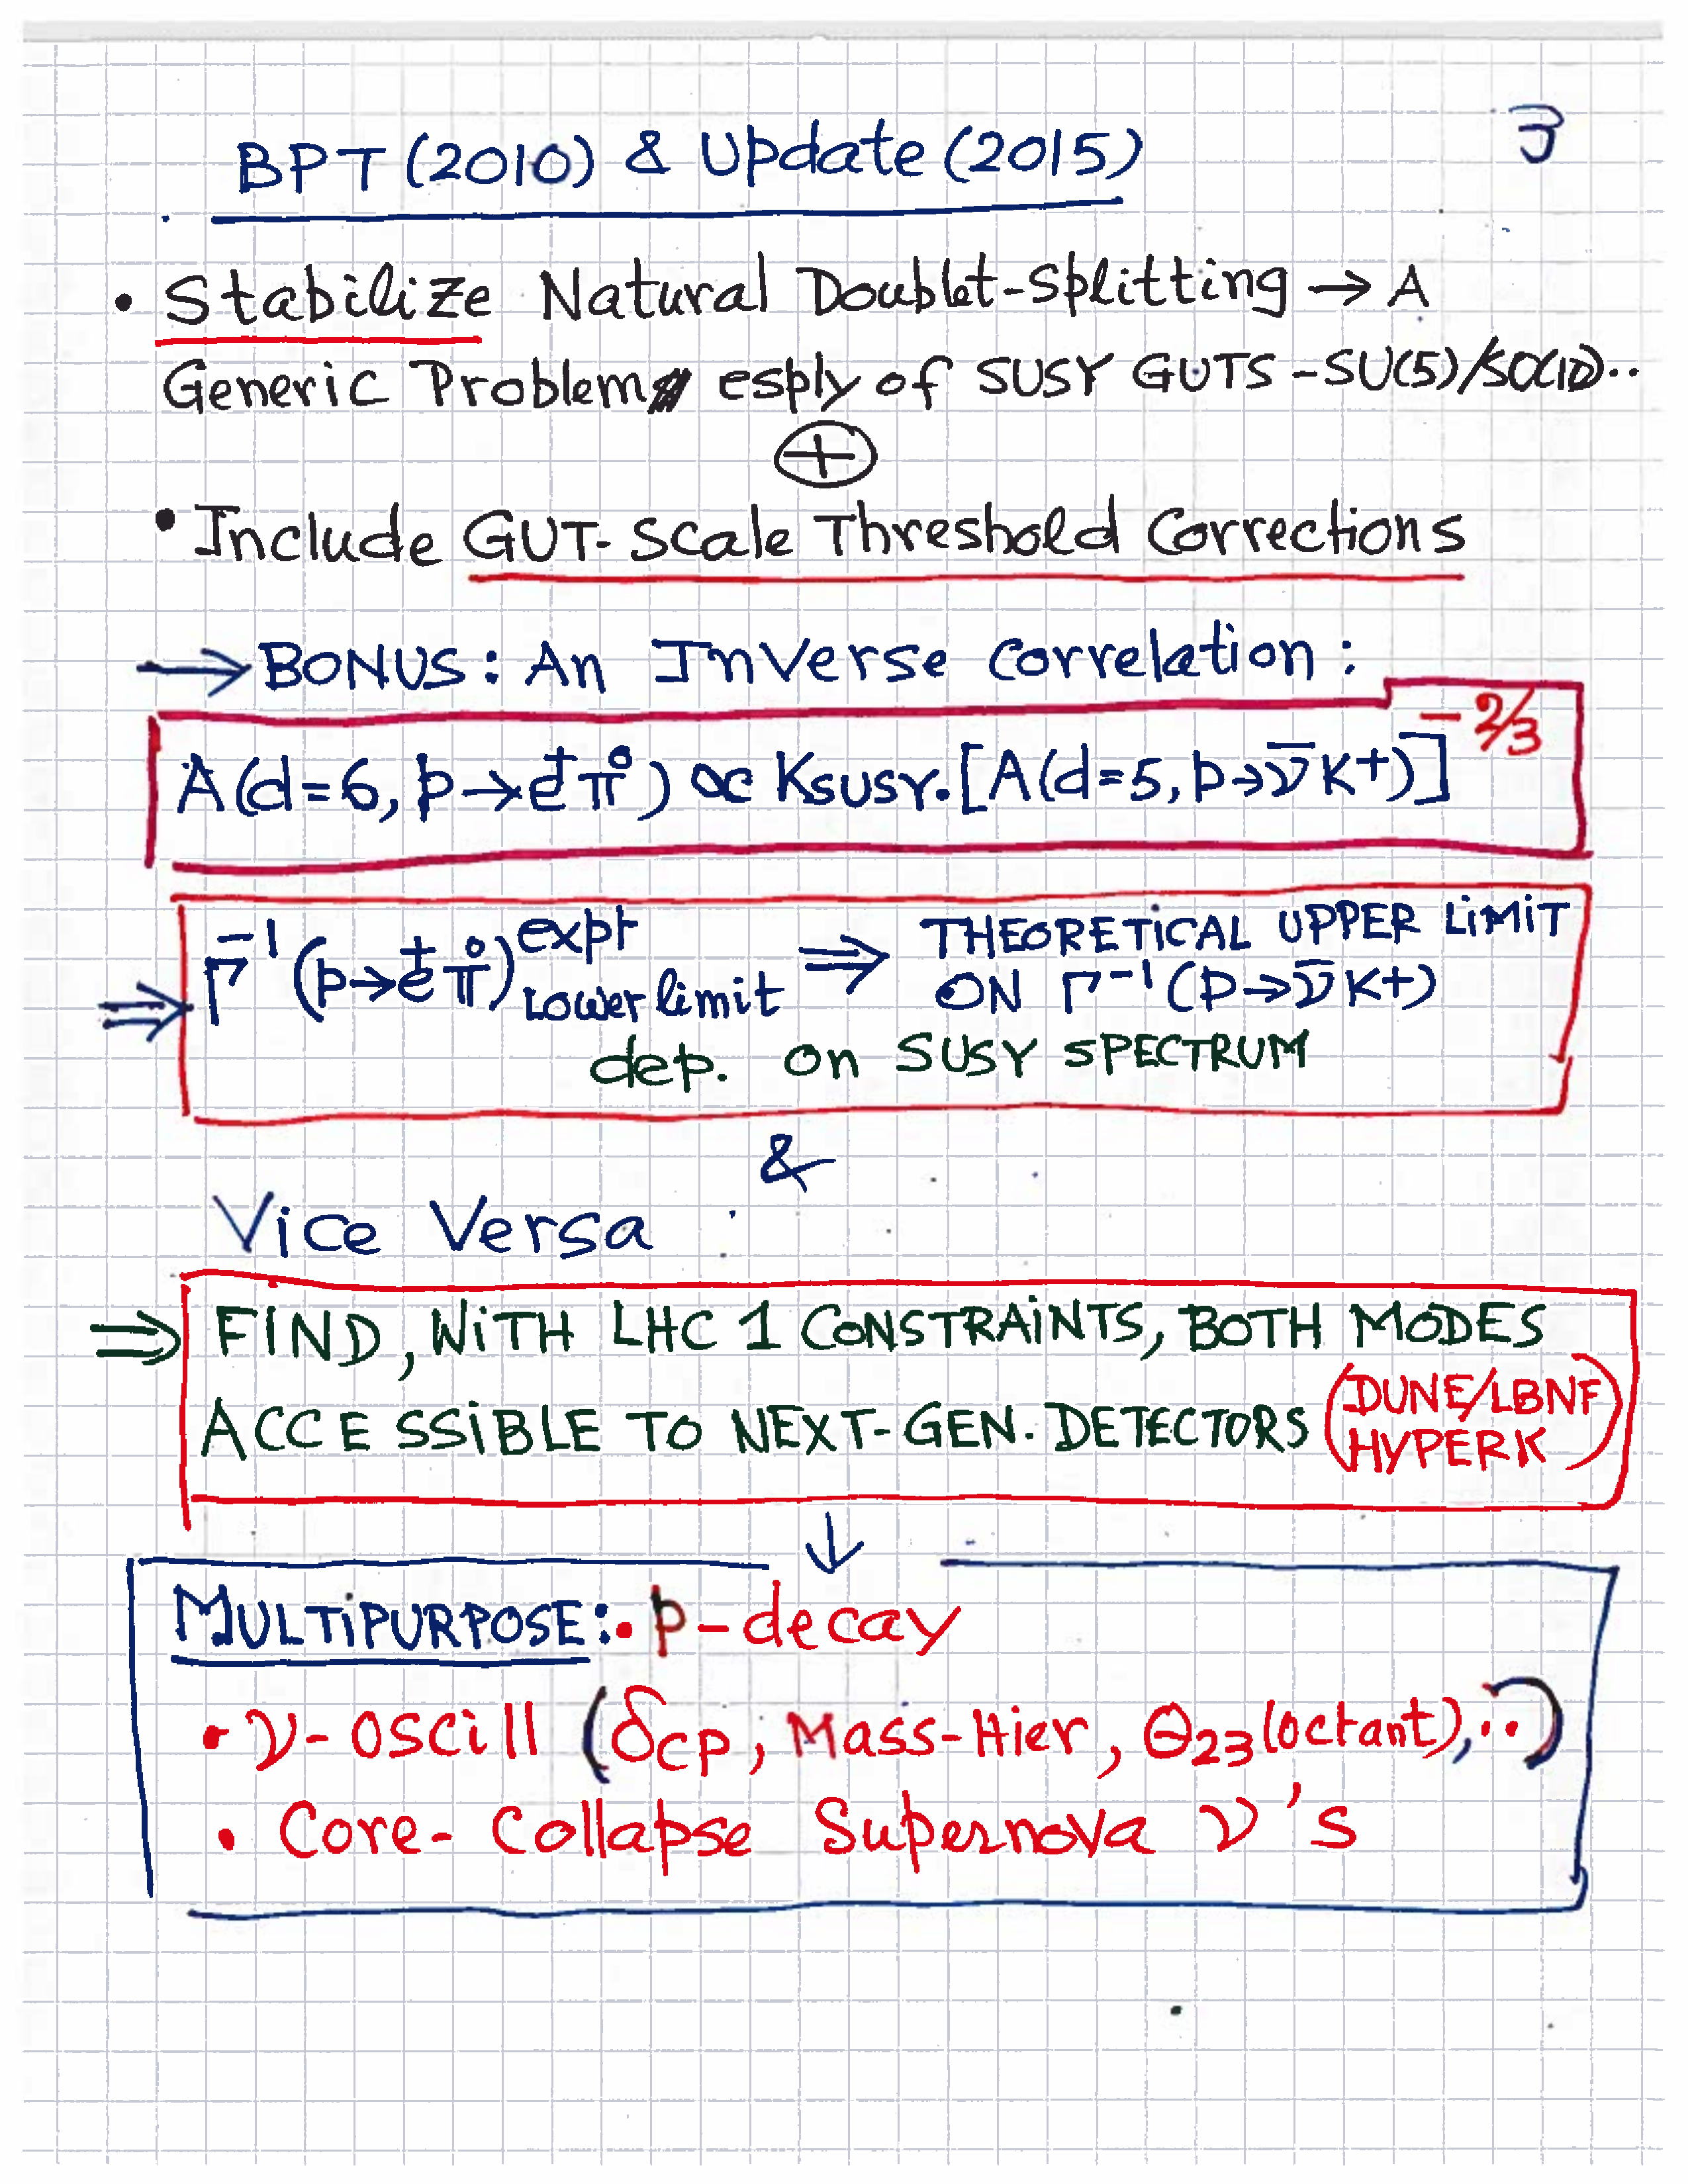 3
BPT (2010) & Update (2015)
• Stabilize Natural Doublet-Splitting → A
Generic Problem esply of SUSY GUTS - SU(5)/SO(10)..
⊕
• Include GUT-Scale Threshold Corrections
→ BONUS: An InVerse Correlation:
A(d=6, p→e⁺π°) ∝ K_SUSY.[A(d=5, p→ν̄K+)]^-2/3
⇒ Γ^-1(p→e⁺π°)^expt_Lower limit ⇒ THEORETICAL UPPER LIMIT
ON Γ^-1(p→ν̄K+)
dep. on SUSY SPECTRUM
&
Vice Versa
⇒ FIND, WITH LHC 1 CONSTRAINTS, BOTH MODES
ACCESSIBLE TO NEXT-GEN. DETECTORS (DUNE/LBNF
HYPERK)
↓
MULTIPURPOSE: • p-decay
• ν-oscill (δcp, Mass-Hier, Θ23(octant),..)
• Core-Collapse Supernova ν's